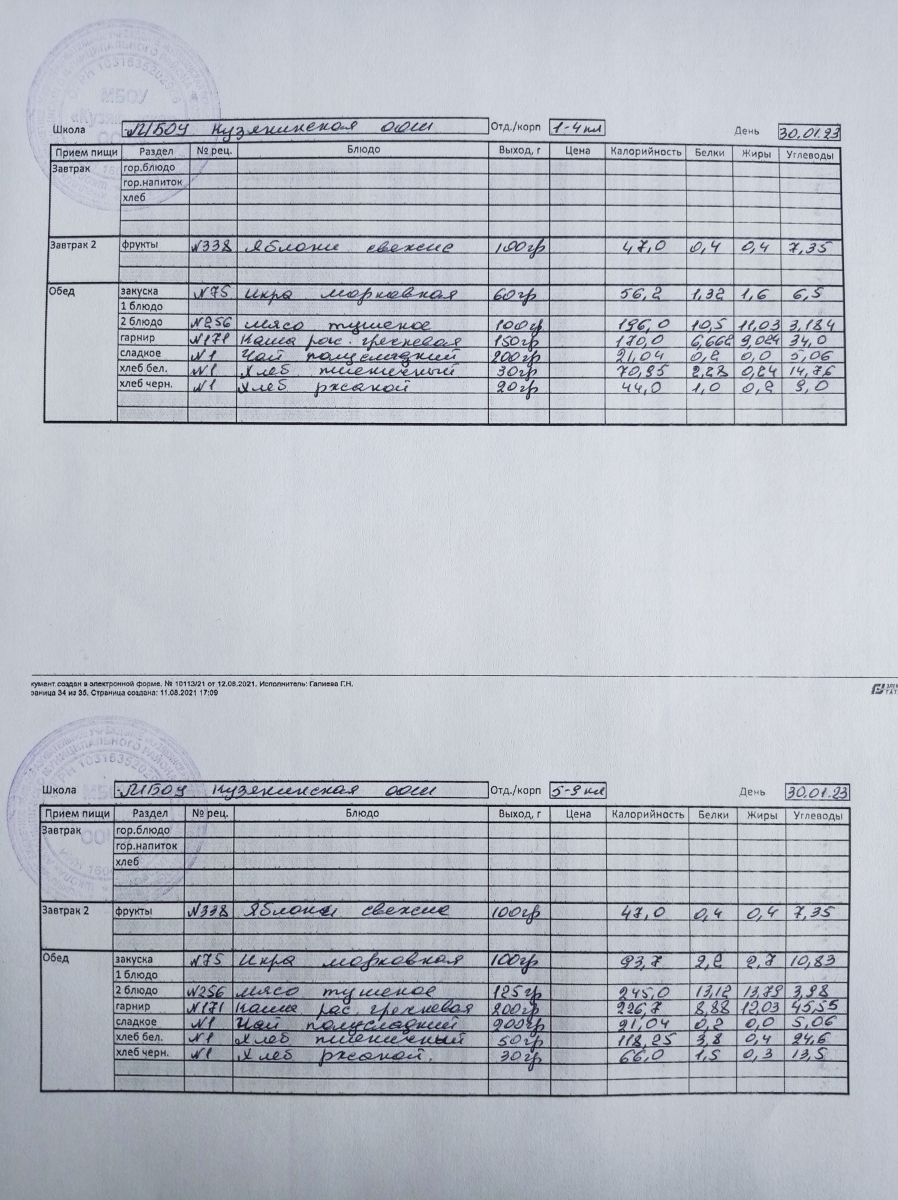 МБОУ
Школа МБОУ Кузякинская ООШ Отд./корп 1-4 кл День 30.01.23
Прием пищи Раздел № рец. Блюдо Выход, г Цена Калорийность Белки Жиры Углеводы
Завтрак гор.блюдо
гор.напиток
хлеб
Завтрак 2 фрукты №338 Яблоки свежие 100гр 47,0 0,4 0,4 7,35
Обед закуска №75 Икра морковная 60гр 56,2 1,32 1,6 6,5
1 блюдо
2 блюдо №256 мясо тушеное 100гр 196,0 10,5 11,03 3,184
гарнир №171 Каша рас. гречневая 150гр 170,0 6,662 9,024 34,0
сладкое №1 Чай полусладкий 200гр 21,04 0,2 0,0 5,06
хлеб бел. №1 Хлеб пшеничный 30гр 70,95 2,28 0,24 14,76
хлеб черн. №1 Хлеб ржаной 20гр 44,0 1,0 0,2 9,0
кумент создан в электронной форме. № 10113/21 от 12.08.2021. Исполнитель: Галиева Г.Н.
раница 34 из 35. Страница создана: 11.08.2021 17:09
Школа МБОУ Кузякинская ООШ Отд./корп 5-9 кл День 30.01.23
Прием пищи Раздел № рец. Блюдо Выход, г Цена Калорийность Белки Жиры Углеводы
Завтрак гор.блюдо
гор.напиток
хлеб
Завтрак 2 фрукты №338 Яблоки свежие 100гр 47,0 0,4 0,4 7,35
Обед закуска №75 Икра морковная 100гр 93,7 2,2 2,7 10,83
1 блюдо
2 блюдо №256 мясо тушеное 125гр 245,0 13,12 13,79 3,98
гарнир №171 каша рас. гречневая 200гр 226,7 8,88 12,03 45,55
сладкое №1 Чай полусладкий 200гр 21,04 0,2 0,0 5,06
хлеб бел. №1 Хлеб пшеничный 50гр 118,25 3,8 0,4 24,6
хлеб черн. №1 Хлеб ржаной. 30гр 66,0 1,5 0,3 13,5